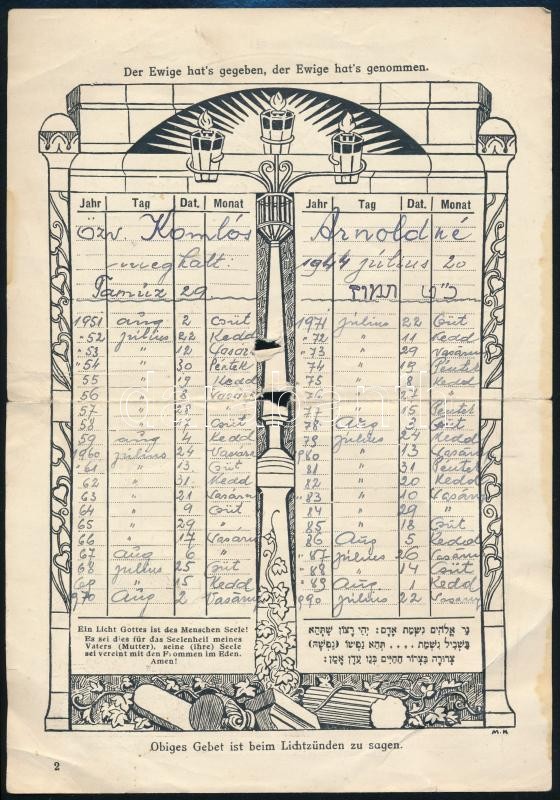 Der Ewige hat's gegeben, der Ewige hat's genommen.
Jahr Tag Dat. Monat Jahr Tag Dat. Monat
Özv. Komlós Arnoldné
meghalt: 1944 július 20
Tamúz 29 כ"ט תמוז
1951 aug 2 Csüt
" 52 július 22 Kedd
" 53 " 12 Vasárn
" 54 " 30 Péntek
55 " 19 Kedd
56 " 8 Vasárn
57 " 28 "
58 " 17 Csüt
59 aug 4 Kedd
1960 július 24 Vasárn
" 61 " 13 Csüt
62 " 31 Kedd
63 " 21 Vasárn
64 " 9 Csüt
65 " 29 "
66 " 17 Vasárn
67 aug 6 "
68 július 25 Csüt
69 " 15 Kedd
1970 Aug 2 Vasárn
1971 július 22 Csüt
" 72 " 11 Kedd
" 73 " 29 Vasárn
" 74 " 19 Péntek
" 75 " 8 Kedd
76 " 27 "
77 " 15 Péntek
78 Aug 3 Csüt
79 július 24 Kedd
1980 " 13 Vasárn
81 " 31 Péntek
82 " 20 Kedd
" 83 " 10 Vasárn
" 84 " 29 "
85 " 18 Csüt
86 Aug 5 Kedd
" 87 július 26 Vasárn
" 88 " 14 Csüt
" 89 Aug 1 Kedd
1990 július 22 Vasárn
Ein Licht Gottes ist des Menschen Seele!
Es sei dies für das Seelenheil meines
Vaters (Mutter), seine (ihre) Seele
sei vereint mit den Frommen im Eden.
Amen!
נר אלהים נשמת אדם: יהי רצון שתהא
בשביל נשמת .... תהא נפשו (נפשה)
צרורה בצרור החיים בגן עדן אמן:
M. H
Obiges Gebet ist beim Lichtzünden zu sagen.
2